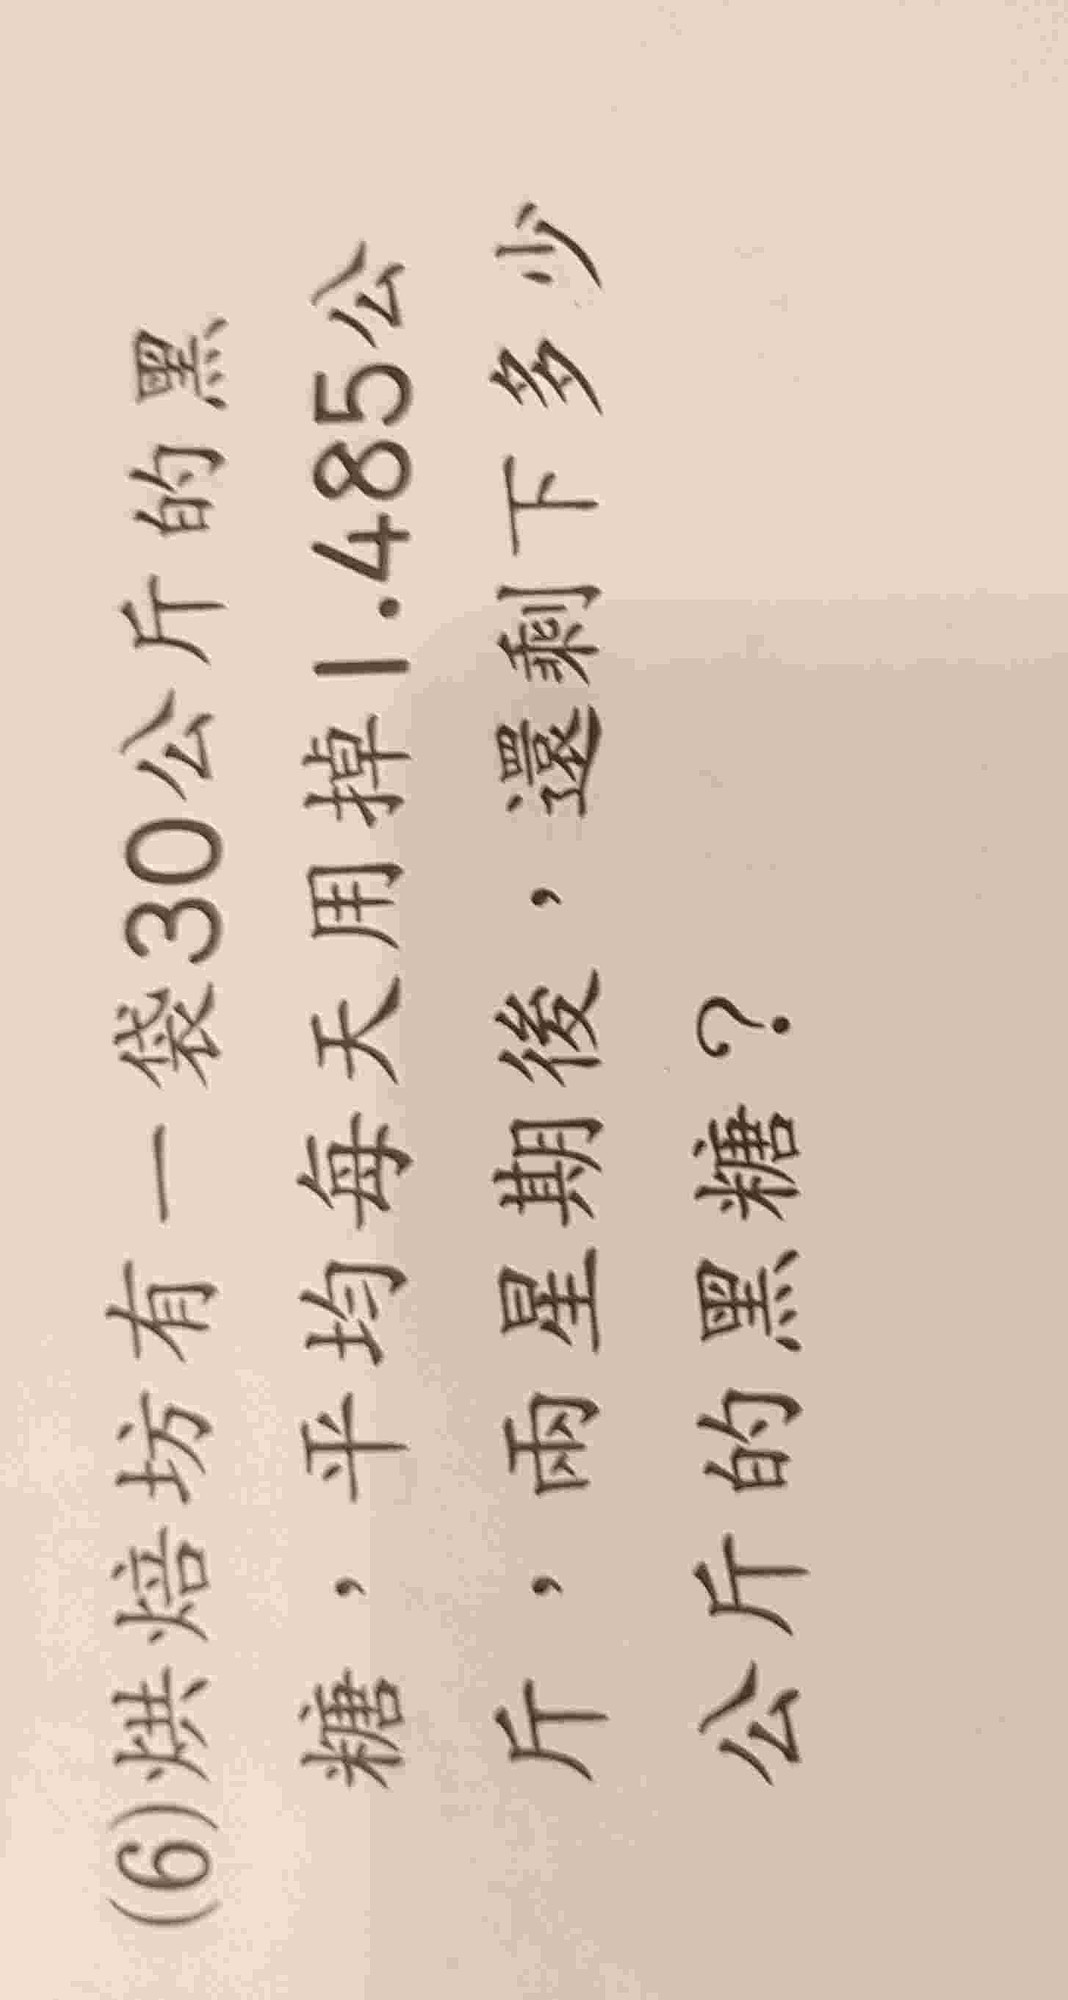 (6)烘焙坊有一袋30公斤的黑
糖，平均每天用掉1.485公
斤，兩星期後，還剩下多少
公斤的黑糖？